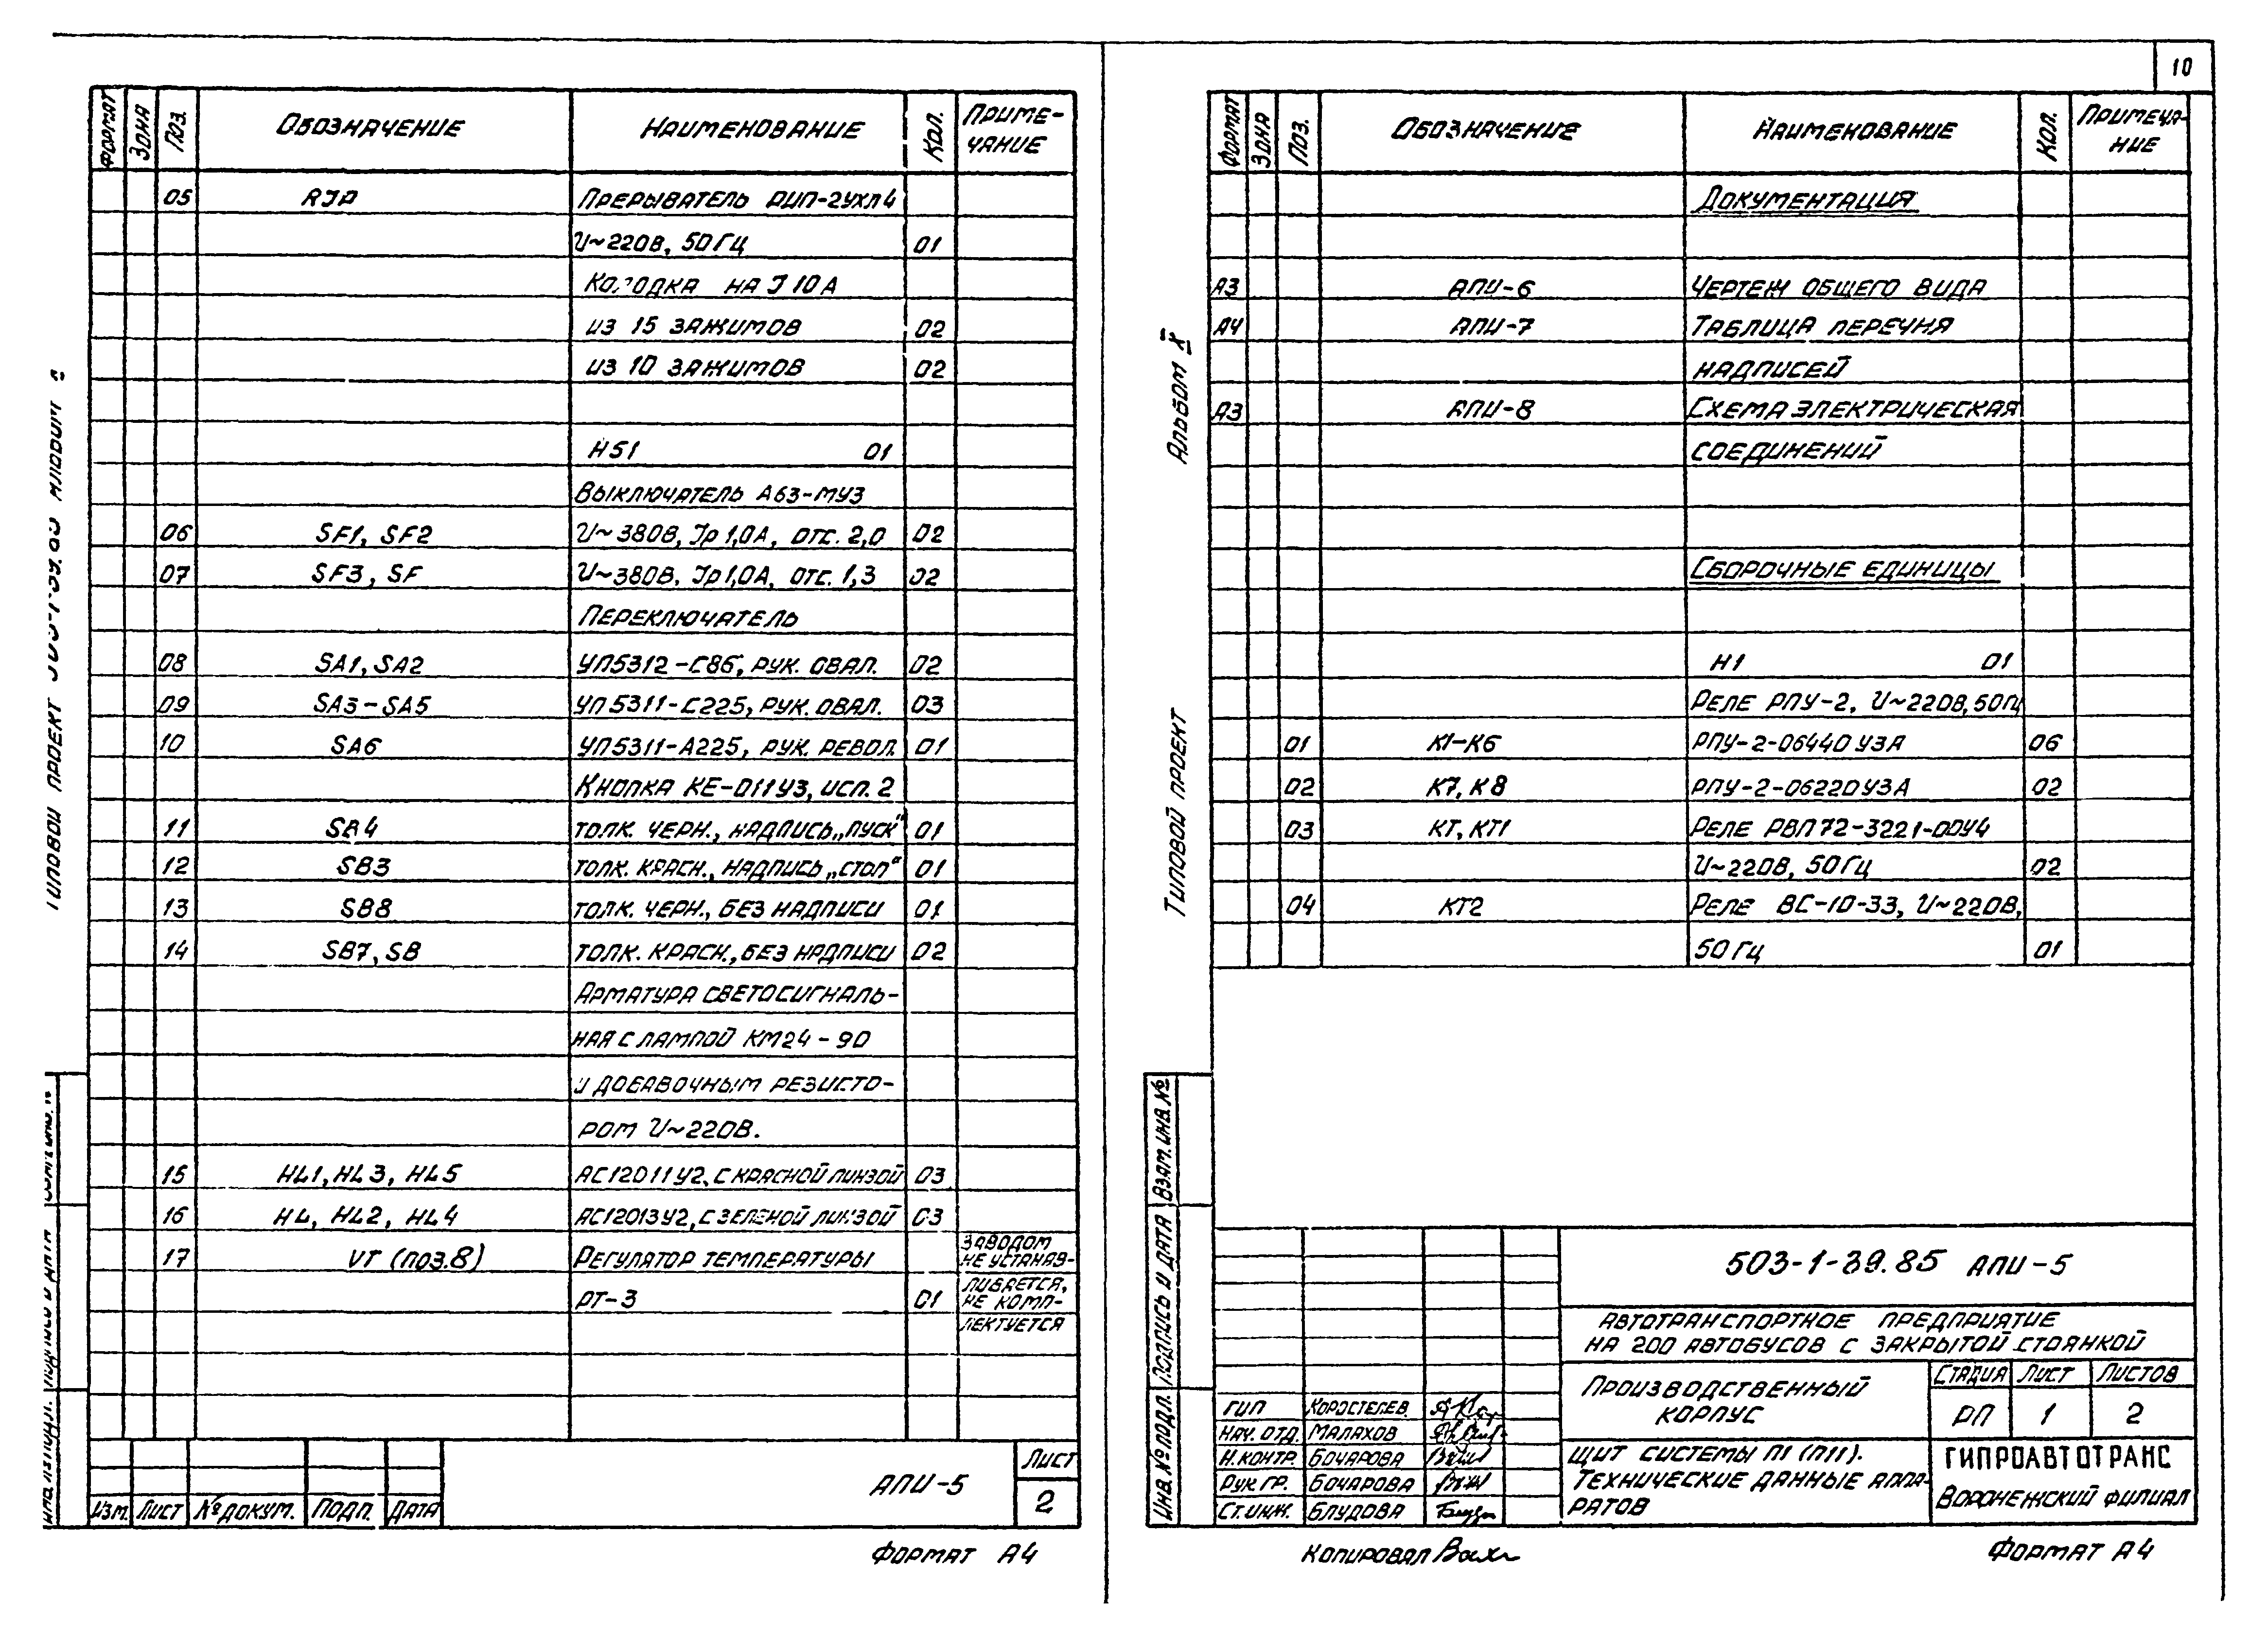 10
ФОРМАТ ЗОНА ПОЗ. ОБОЗНАЧЕНИЕ НАИМЕНОВАНИЕ КОЛ. ПРИМЕ-
ЧАНИЕ
05 ПРЕРЫВАТЕЛЬ РИП-2УХЛ4
U~220В, 50ГЦ 01
КОЛОДКА НА J 10А
ИЗ 15 ЗАЖИМОВ 02
ИЗ 10 ЗАЖИМОВ 02
Н51 01
ВЫКЛЮЧАТЕЛЬ А63-МУ3
06 SF1, SF2 U~380В, Jр 1,0А, ОТС. 2,0 02
07 SF3, SF U~380В, Jр 1,0А, ОТС. 1,3 02
ПЕРЕКЛЮЧАТЕЛЬ
08 SA1, SA2 УП5312-С86, РУК. ОВАЛ. 02
09 SA3-SA5 УП5311-С225, РУК. ОВАЛ. 03
10 SA6 УП5311-А225, РУК. РЕВОЛ. 01
КНОПКА КЕ-011У3, ИСП. 2
11 SB4 ТОЛК. ЧЕРН., НАДПИСЬ „ПУСК“ 01
12 SB3 ТОЛК. КРАСН., НАДПИСЬ „СТОП“ 01
13 SB8 ТОЛК. ЧЕРН., БЕЗ НАДПИСИ 01
14 SB7, SB ТОЛК. КРАСН., БЕЗ НАДПИСИ 02
АРМАТУРА СВЕТОСИГНАЛЬ-
НАЯ С ЛАМПОЙ КМ24-90
И ДОБАВОЧНЫМ РЕЗИСТО-
РОМ U~220В.
15 HL1, HL3, HL5 АС12011У2, С КРАСНОЙ ЛИНЗОЙ 03
16 HL, HL2, HL4 АС12013У2, С ЗЕЛЕНОЙ ЛИНЗОЙ 03
17 VT (ПОЗ.8) РЕГУЛЯТОР ТЕМПЕРАТУРЫ ЗАВОДОМ
НЕ УСТАНАВ-
РТ-3 01 ЛИВАЕТСЯ,
НЕ КОМП-
ЛЕКТУЕТСЯ
ИЗМ. ЛИСТ № ДОКУМ. ПОДП. ДАТА
АПИ-5
ЛИСТ
2
ФОРМАТ А4
ТИПОВОЙ ПРОЕКТ
АЛЬБОМ X
ТИПОВОЙ ПРОЕКТ
ФОРМАТ ЗОНА ПОЗ. ОБОЗНАЧЕНИЕ НАИМЕНОВАНИЕ КОЛ. ПРИМЕЧА-
НИЕ
ДОКУМЕНТАЦИЯ
А3 АПИ-6 ЧЕРТЕЖ ОБЩЕГО ВИДА
А4 АПИ-7 ТАБЛИЦА ПЕРЕЧНЯ
НАДПИСЕЙ
А3 АПИ-8 СХЕМА ЭЛЕКТРИЧЕСКАЯ
СОЕДИНЕНИЙ
СБОРОЧНЫЕ ЕДИНИЦЫ
Н1 01
РЕЛЕ РПУ-2, U~220В, 50ГЦ
01 К1-К6 РПУ-2-06440У3А 06
02 К7, К8 РПУ-2-06220У3А 02
03 КТ, КТ1 РЕЛЕ РВП72-3221-00У4
U~220В, 50ГЦ 02
04 КТ2 РЕЛЕ ВС-10-33, U~220В,
50ГЦ 01
ВЗАМ. ИНВ. №
ПОДПИСЬ И ДАТА
ИНВ. № ПОДЛ.
503-1-39.85 АПИ-5
АВТОТРАНСПОРТНОЕ ПРЕДПРИЯТИЕ
НА 200 АВТОБУСОВ С ЗАКРЫТОЙ СТОЯНКОЙ
ПРОИЗВОДСТВЕННЫЙ
КОРПУС
СТАДИЯ ЛИСТ ЛИСТОВ
РП 1 2
ГИП КОРОСТЕЛЕВ
НАЧ. ОТД. МАЛАХОВ
Н. КОНТР. БОЧАРОВА
РУК. ГР. БОЧАРОВА
СТ. ИНЖ. БЛУДОВА
ЩИТ СИСТЕМЫ П1 (П11).
ТЕХНИЧЕСКИЕ ДАННЫЕ АППА-
РАТОВ
ГИПРОАВТОТРАНС
ВОРОНЕЖСКИЙ ФИЛИАЛ
КОПИРОВАЛ
ФОРМАТ А4